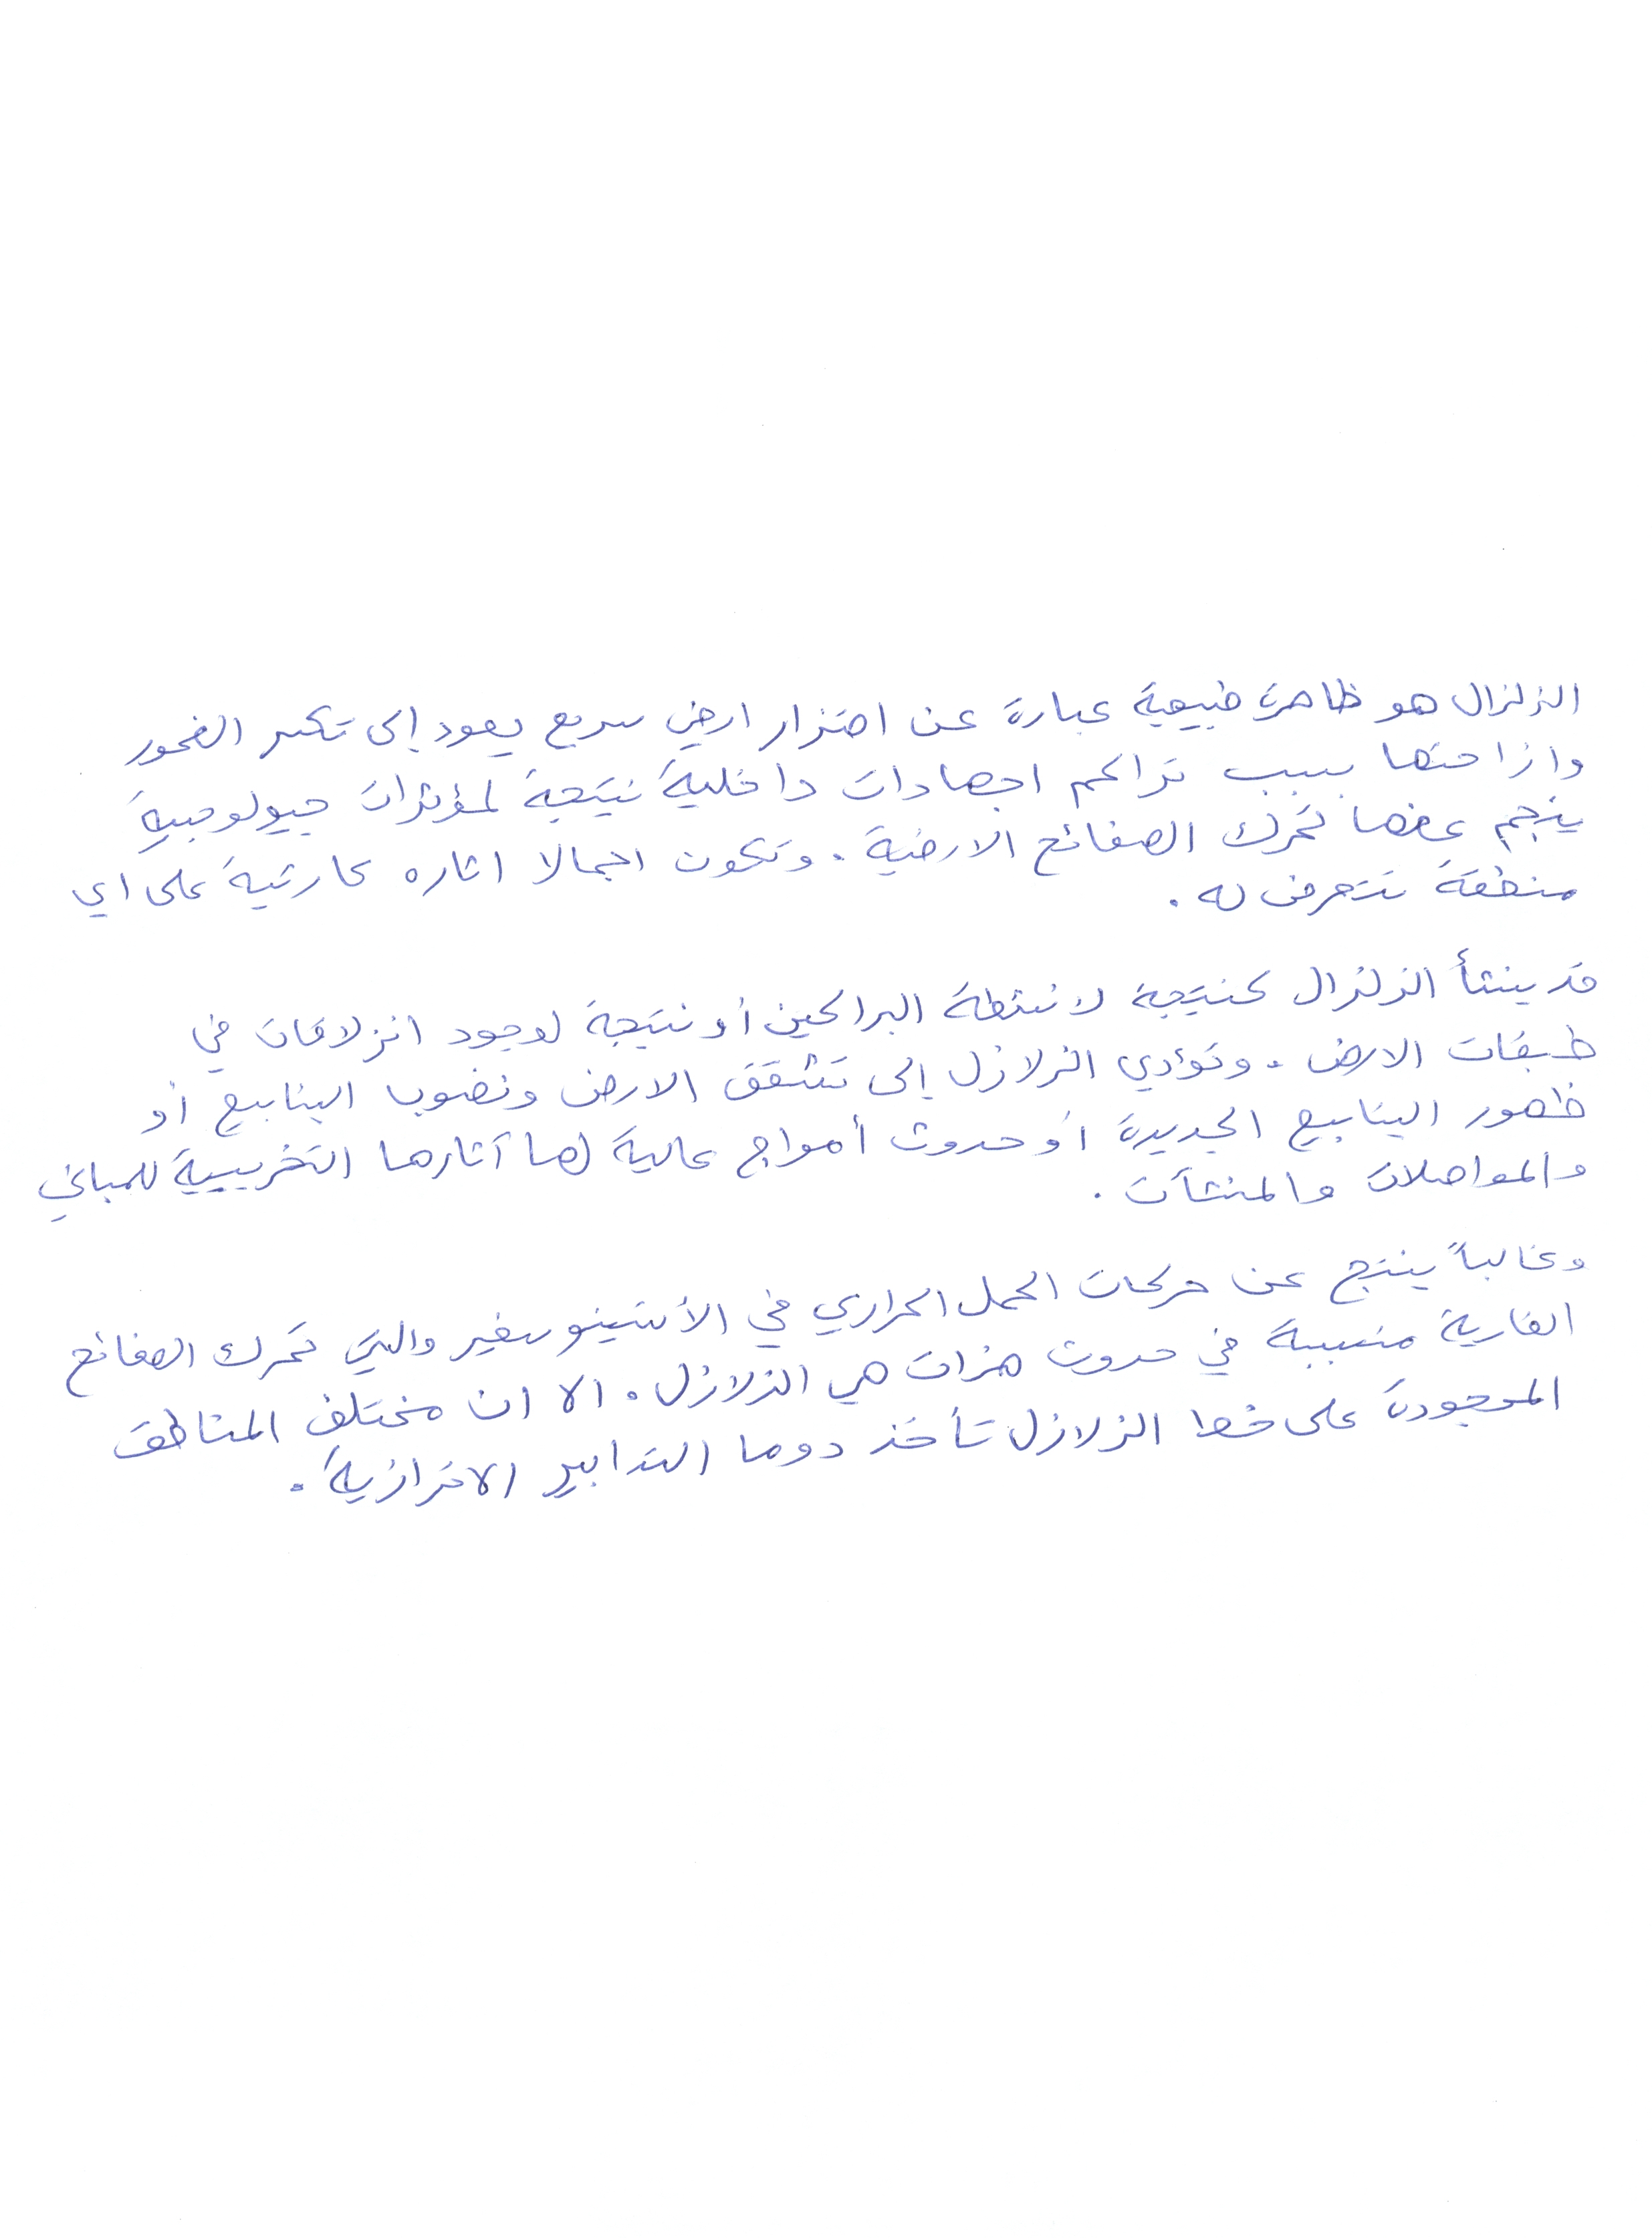 الزلزال هو ظاهرة طبيعية عبارة عن اهتزاز ارضي سريع يعود إلى تكسر الصخور
وازاحتها بسبب تراكم اجهادات داخلية نتيجة لمؤثرات جيولوجية
ينجم عنها تحرك الصفائح الارضية. وتكون اجمالا اثاره كارثية على اي
منطقة تتعرض له.
قد ينشأ الزلزال كنتيجة لانشطة البراكين أو نتيجة لوجود انزلاقات في
طبقات الارض. وتؤدي الزلازل إلى تشقق الارض ونضوب الينابيع أو
ظهور الينابيع الجديدة أو حدوث أمواج عالية لها آثارها التخريبية للمباني
والمواصلات والمنشآت.
وغالباً ينتج عن حركات الحمل الحراري في الأستينوسفير والتي تحرك الصفائح
القارية متسببة في حدوث هزات هي الزلازل. الا ان مختلف المناطق
الموجودة على خط الزلازل تأخذ دوما التدابير الاحترازية.